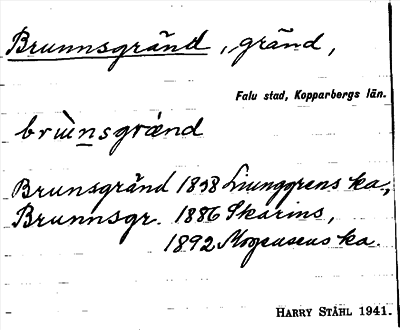 Brunnsgränd, gränd,
Falu stad, Kopparbergs län.
brùnsgrænd
Brunsgränd 1858 Ljunggrens ka,
Brunnsgr. 1886 Skarins,
1892 Mogensens ka.
HARRY STÅHL 1941.